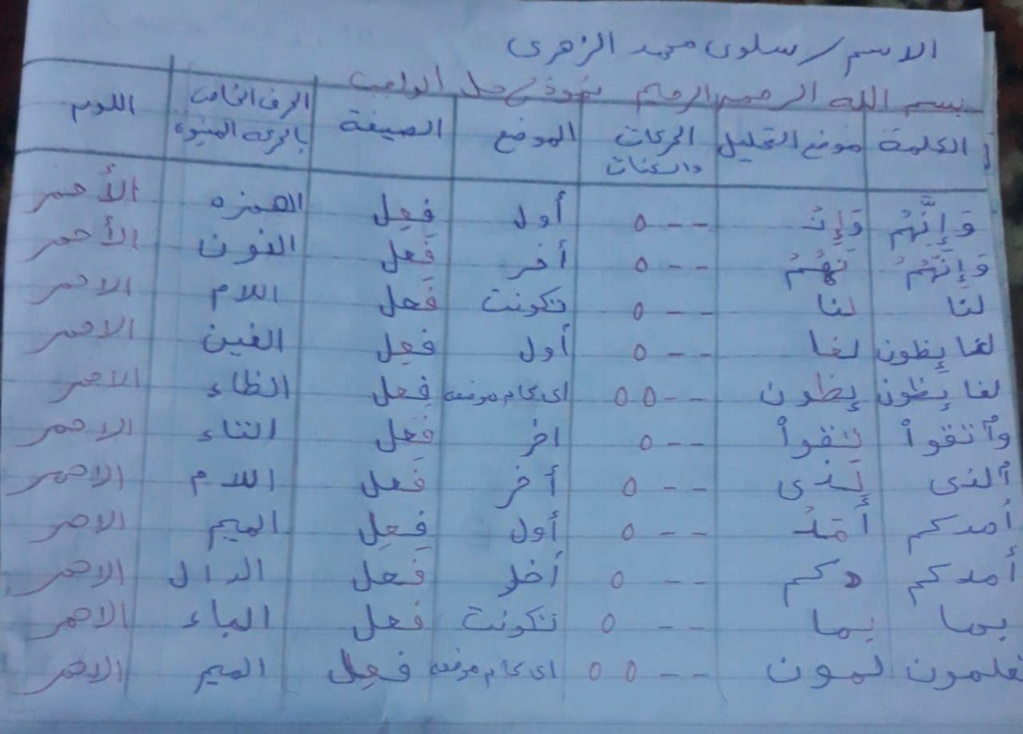 الاسم / سلوى محمد الزهرى
بسم الله الرحمن الرحيم نموذج حل الواجب
الكلمة موضع التحليل الحركات والسكنات الموضع الصيغة الحرف الخاص بالحركة اللون
وَإِنَّهُمْ وَإِنْ --٥ أول فَعِل الهمزه الأحمر
وَإِنَّهُمْ نَهُمْ --٥ أخر فَعُل النون الأحمر
لَنَا لنا --٥ تكونت فَعَل اللام الاحمر
لغايظون لغا --٥ أول فَعَل الغين الاحمر
لغايظون يظون --٥٥ اى كام موضعه فَعِل الظاء الاحمر
وٱتقوا۟ تقوا۟ --٥ اخر فَعل التاء الاحمر
ٱلذى لذى --٥ أخر فَعل اللام الاحمر
أمدكم أَمَدْ --٥ أول فعل الميم الاحمر
أمدكم دكم --٥ فعل الدال الاحمر
بما بما --٥ تكونت فعل الباء الاحمر
تعلمون لمون --٥٥ اى كام موضعه فعل الميم الاحمر